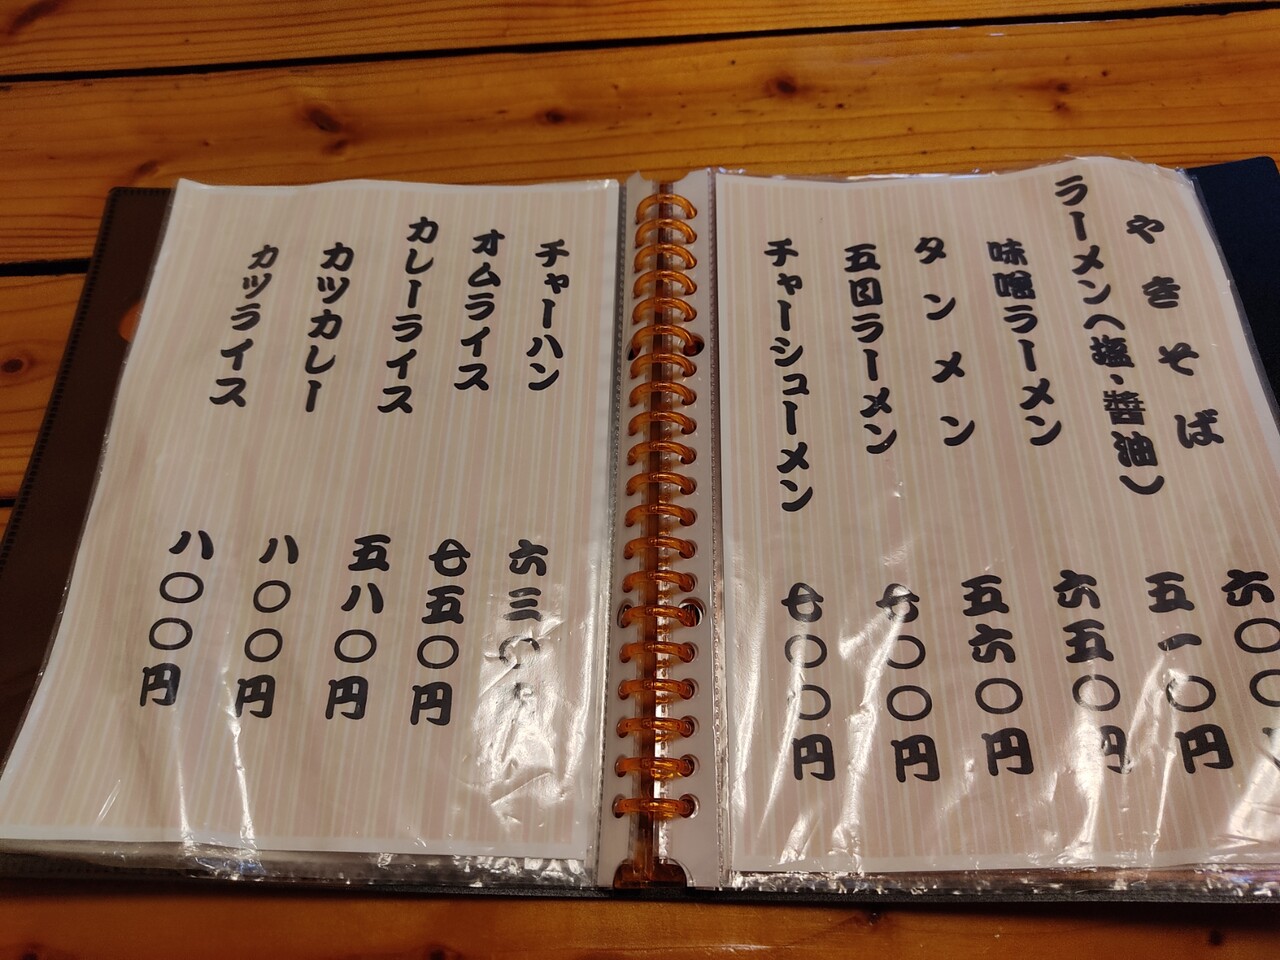 やきそば 六〇〇
ラーメン(塩・醤油) 五一〇円
味噌ラーメン 六五〇円
タンメン 五六〇円
五目ラーメン 七〇〇円
チャーシューメン 七〇〇円
チャーハン 六三〇
オムライス 七五〇円
カレーライス 五八〇円
カツカレー 八〇〇円
カツライス 八〇〇円